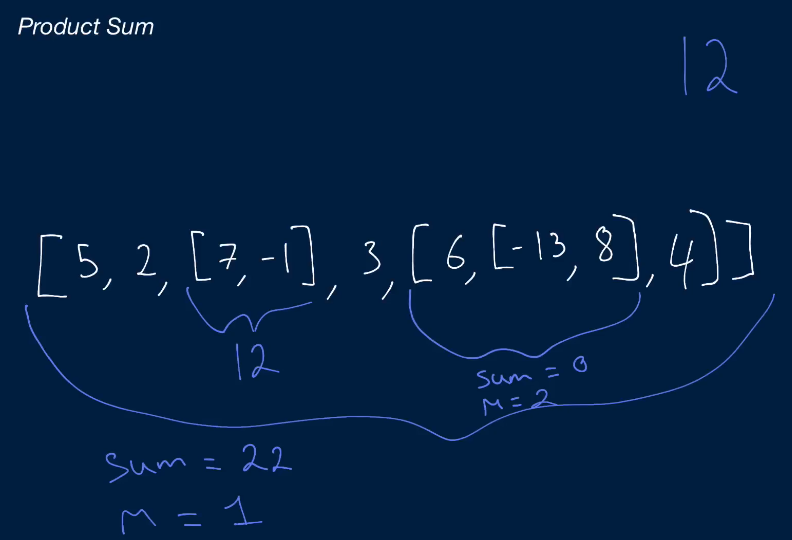 Product Sum
12
[5, 2, [7, -1], 3, [6, [-13, 8], 4]]
12
sum = 0
M = 2
sum = 22
M = 1